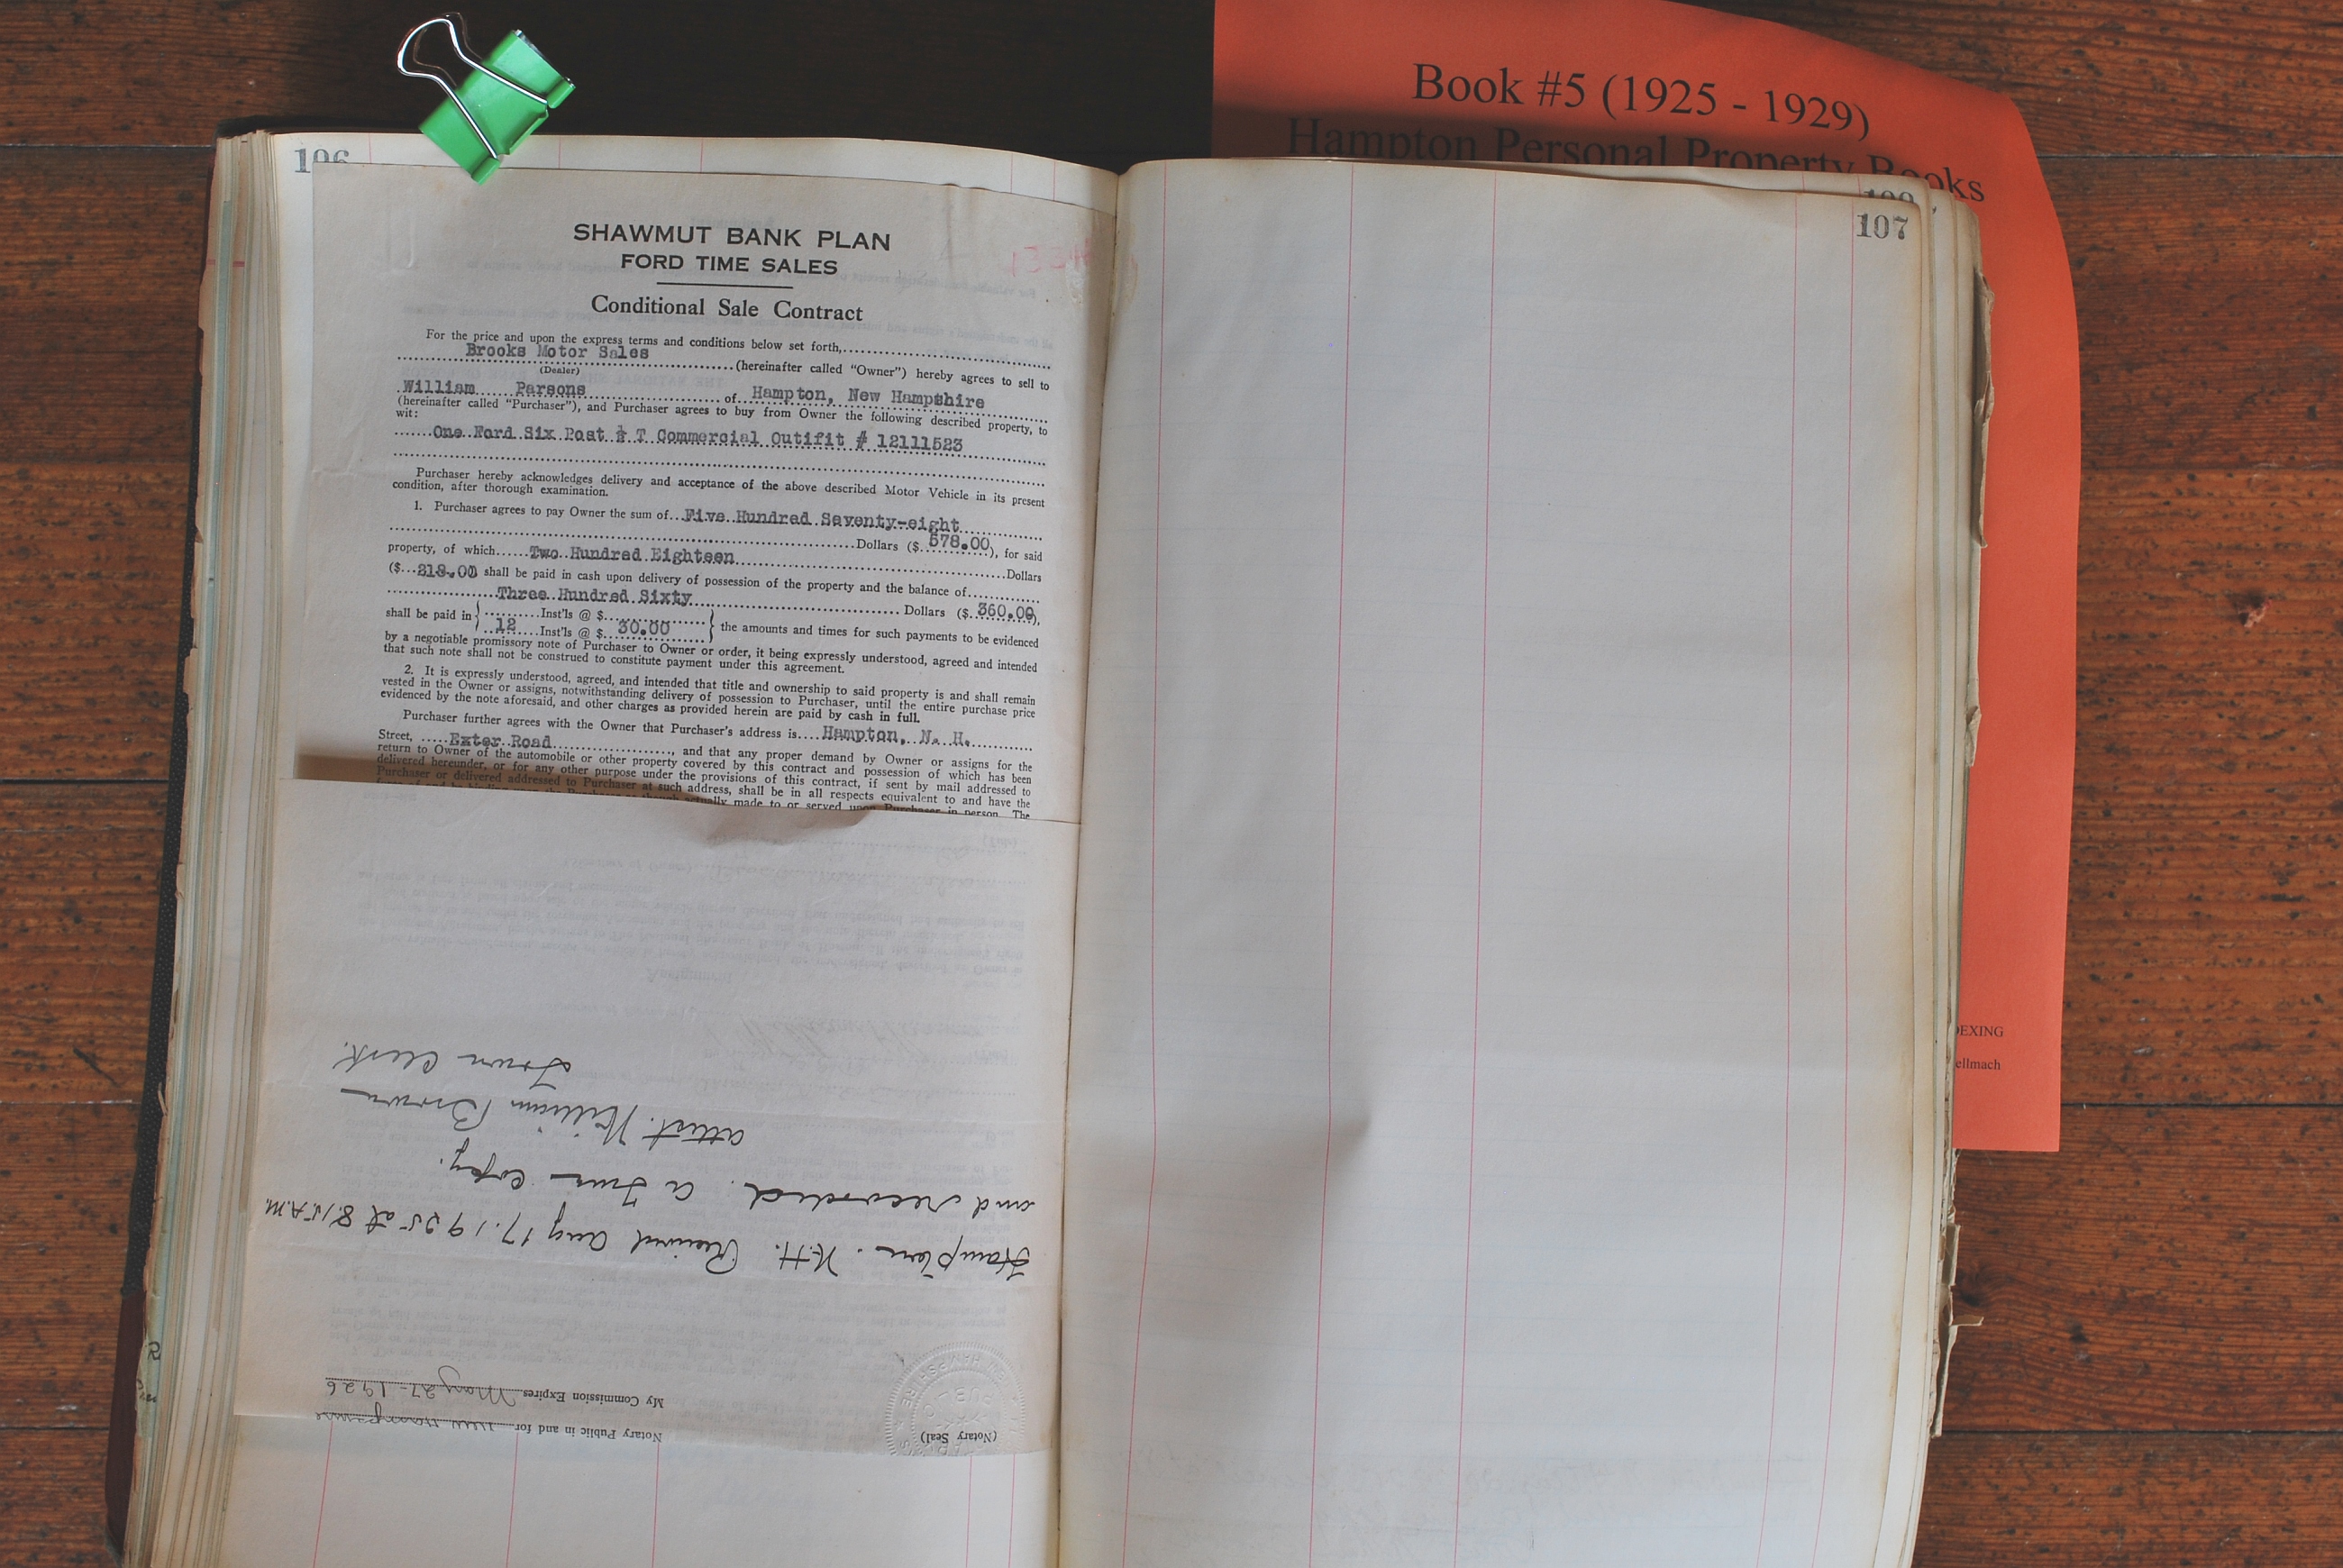 Book #5 (1925 - 1929)
Hampton Personal Property Books
106
107
EXING
ellmach
SHAWMUT BANK PLAN
FORD TIME SALES
Conditional Sale Contract
For the price and upon the express terms and conditions below set forth,
Brooks Motor Sales (hereinafter called "Owner") hereby agrees to sell to
(Dealer)
William Parsons of Hampton, New Hampshire
(hereinafter called "Purchaser"), and Purchaser agrees to buy from Owner the following described property, to
wit:
One Ford Six Post ½ T Commercial Outifit # 12111523
Purchaser hereby acknowledges delivery and acceptance of the above described Motor Vehicle in its present
condition, after thorough examination.
1. Purchaser agrees to pay Owner the sum of Five Hundred Seventy-eight
Dollars ($ 578.00), for said
property, of which Two Hundred Eighteen Dollars
($ 218.00 shall be paid in cash upon delivery of possession of the property and the balance of
Three Hundred Sixty Dollars ($ 360.00),
shall be paid in { Inst'ls @ $
12 Inst'ls @ $ 30.00 } the amounts and times for such payments to be evidenced
by a negotiable promissory note of Purchaser to Owner or order, it being expressly understood, agreed and intended
that such note shall not be construed to constitute payment under this agreement.
2. It is expressly understood, agreed, and intended that title and ownership to said property is and shall remain
vested in the Owner or assigns, notwithstanding delivery of possession to Purchaser, until the entire purchase price
evidenced by the note aforesaid, and other charges as provided herein are paid by cash in full.
Purchaser further agrees with the Owner that Purchaser's address is Hampton, N. H.
Street, Exter Road, and that any proper demand by Owner or assigns for the
return to Owner of the automobile or other property covered by this contract and possession of which has been
delivered hereunder, or for any other purpose under the provisions of this contract, if sent by mail addressed to
Purchaser or delivered addressed to Purchaser at such address, shall be in all respects equivalent to and have the
made to or served upon Purchaser in person. The
(Notary Seal) Notary Public in and for New Hampshire
My Commission Expires May 27-1926
Hampton. N.H. Received Aug 17. 1925 at 8.15 A.M.
and recorded. A True Copy.
attest. William Brown
Town Clerk.